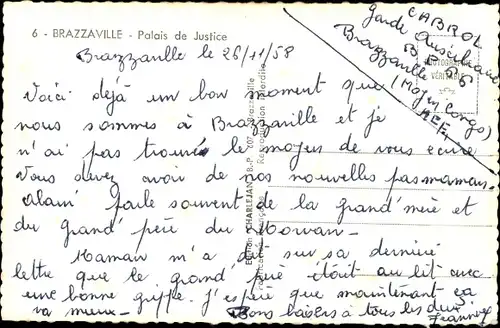 6 - BRAZZAVILLE - Palais de Justice
CABROL
Garde
B.P. 
Brazzaville
(Moyen Congo)
A.E.F.
PHOTOGRAPHIE
VÉRITABLE
Brazzaville le 26/11/58
Voici déjà un bon moment que
nous sommes à Brazzaville et je
n'ai pas trouvé le moyen de vous écrire
Vous devez avoir de nos nouvelles par maman.
Alain parle souvent de la grand'mère et
du grand'père du Morvan.
Maman m'a dit sur sa dernière
lettre que le grand père était au lit avec
une bonne grippe. J'espère que maintenant ça
va mieux - Bons baisers à tous les deux
Jeannine
Edition CHARLEJAN B.P. 107 Brazzaville
Reproduction Interdite